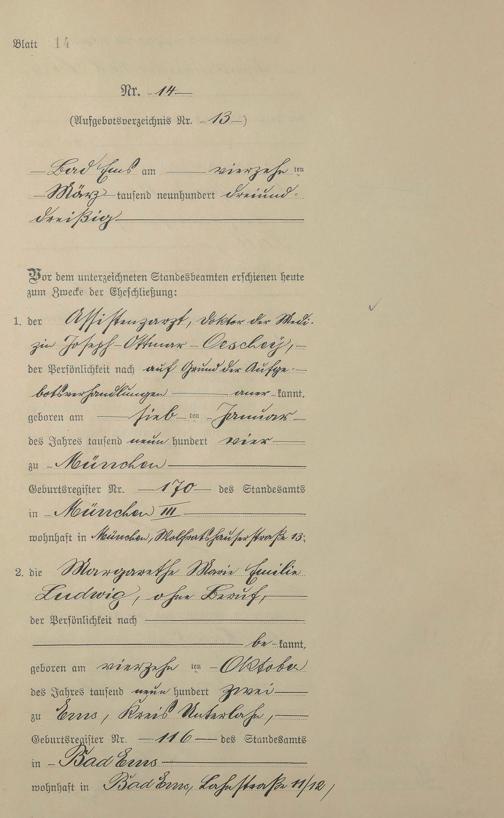 Blatt 14
Nr. 14
(Aufgebotsverzeichnis Nr. 13)
Bad Ems am vierzehn ten
März tausend neunhundert dreiund-
dreißig
Vor dem unterzeichneten Standesbeamten erschienen heute
zum Zwecke der Eheschließung:
1. der Assistenzarzt, Doktor der Medi-
zin Joseph Ottmar Oeschey,
der Persönlichkeit nach auf Grund der Aufge-
botsverhandlungen aner-kannt,
geboren am sieb ten Januar
des Jahres tausend neun hundert vier
zu München
Geburtsregister Nr. 170 des Standesamts
in München III
wohnhaft in München, Wolfratshauserstraße 13;
2. die Margarethe Marie Emilie
Ludwig, ohne Beruf,
der Persönlichkeit nach
be-kannt,
geboren am vierzehn ten Oktober
des Jahres tausend neun hundert zwei
zu Ems, Kreis Unterlahn,
Geburtsregister Nr. 116 des Standesamts
in Bad Ems
wohnhaft in Bad Ems, Lahnstraße 11/12,